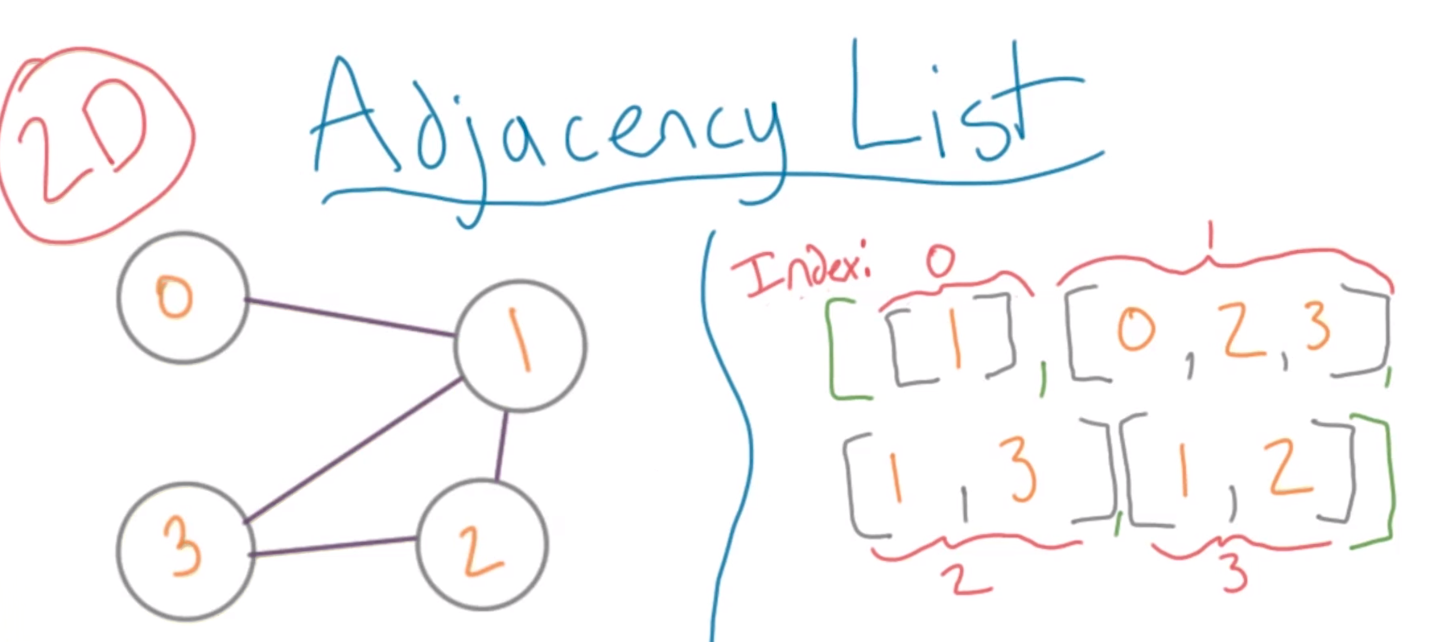 2D
Adjacency List
0
1
3
2
Index: 0 1
[[1], [0, 2, 3],
[1, 3], [1, 2]]
2 3